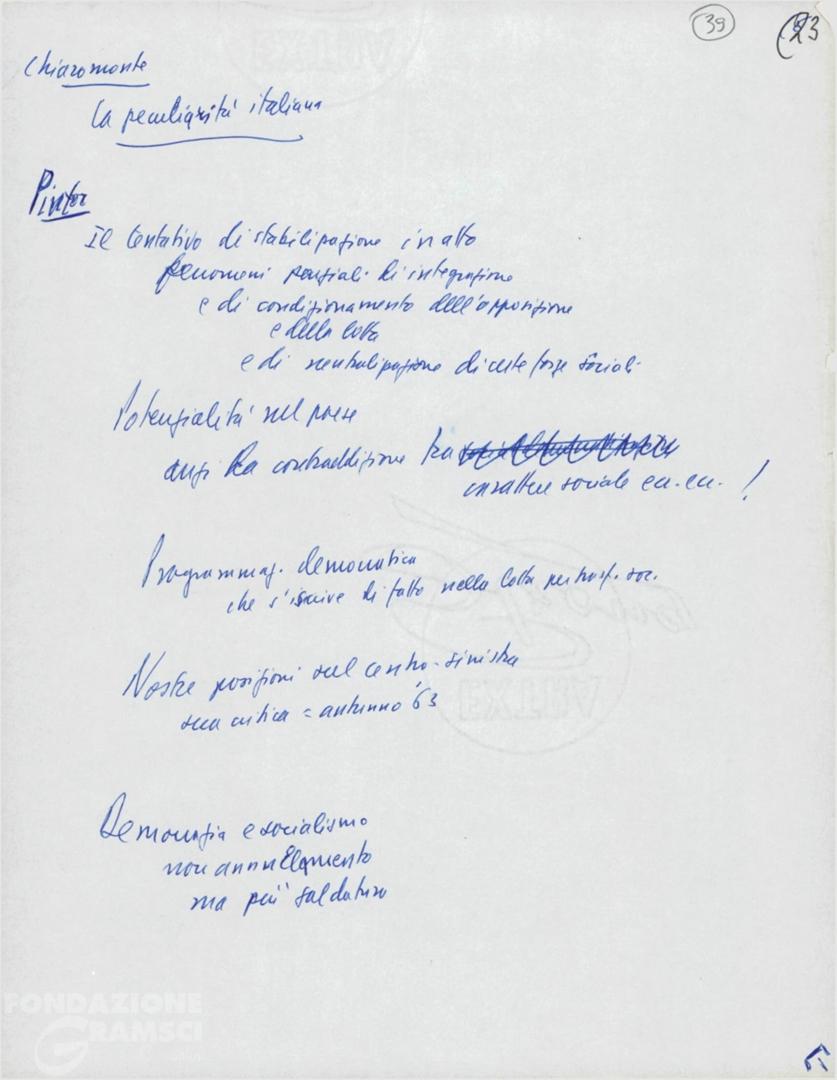 39
23
Chiaromonte
La peculiarità italiana
Pintor
Il tentativo di stabilizzazione in atto
fenomeni parziali di integrazione
e di condizionamento dell'opposizione
e della lotta
e di neutralizzazione di certe forze sociali
Potenzialità nel paese
anzi la contraddizione tra
carattere sociale ec. ec. !
Programmaz. democratica
che s'iscrive di fatto nella lotta per trasf. soc.
Nostre posizioni sul centro-sinistra
sua critica = autunno '63
Democrazia e socialismo
non annullamento
ma più saldatura
EXTRA
FONDAZIONE
GRAMSCI